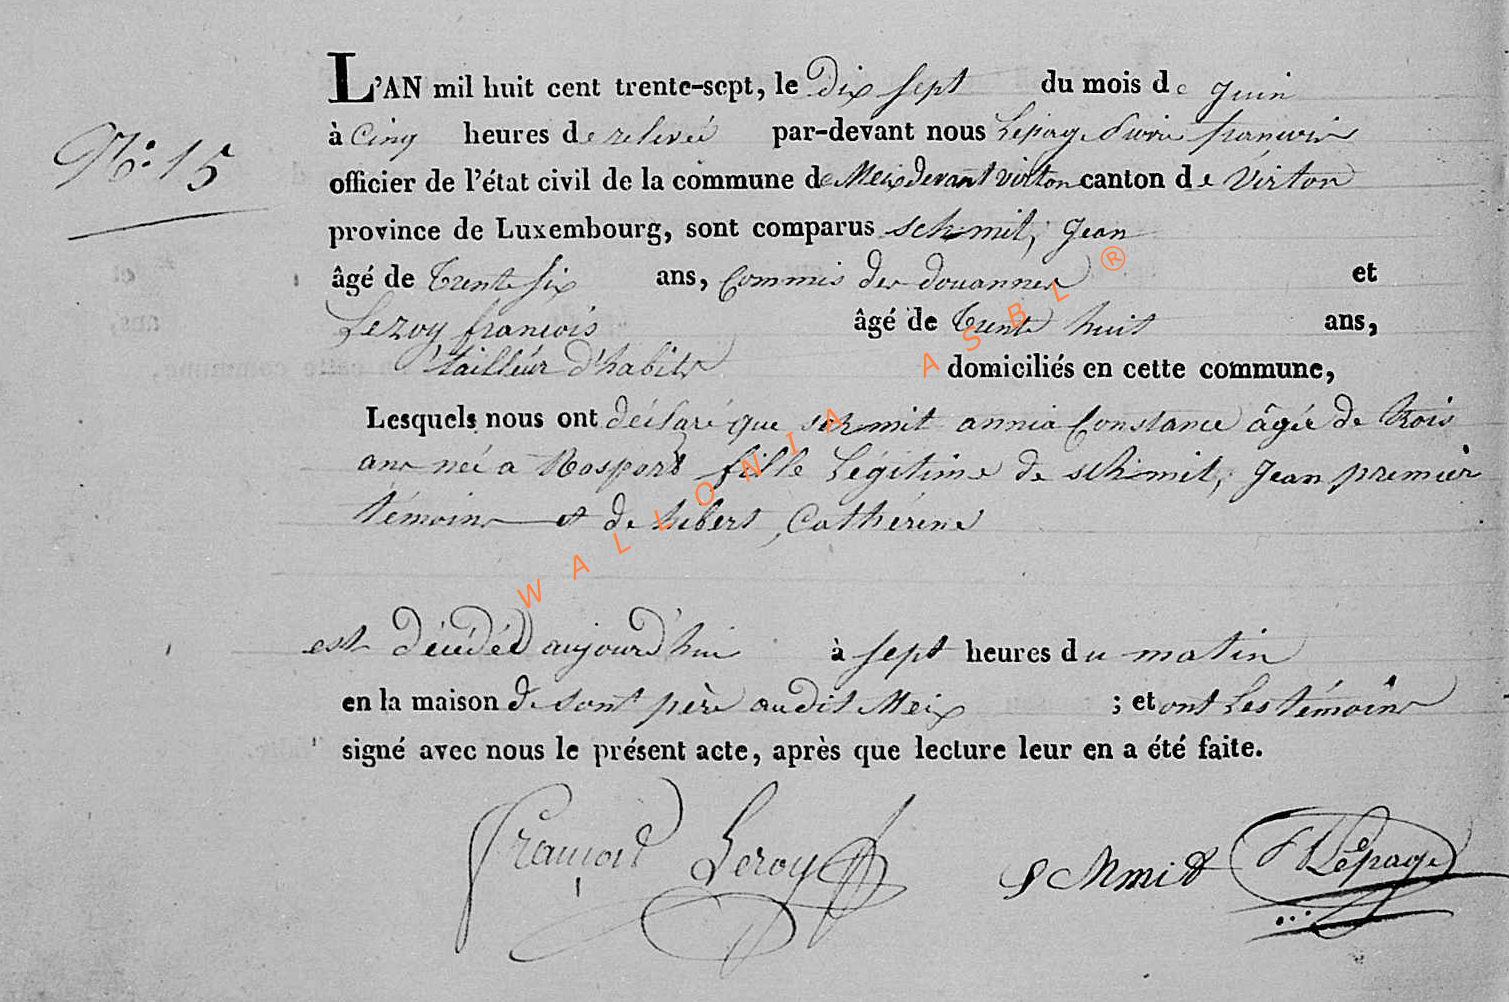 L'AN mil huit cent trente-sept, le Dix sept du mois de juin
N.° 15
à Cinq heures de relevée par-devant nous Lepage francois
officier de l'état civil de la commune de Meix devant virton canton de Virton
province de Luxembourg, sont comparus schmit, jean
âgé de trente six ans, Commis des douannes et
Leroy françois âgé de trente huit ans,
tailleur d'habits domiciliés en cette commune,
Lesquels nous ont déclaré que schmit annia Constance âgée de trois
ans née a Rosport fille Légitime de schmit, jean premier
témoins et de hubert, Catherine
est Décédée aujourd'hui à sept heures du matin
en la maison de sont père audit Meix ; et ont Les témoins
signé avec nous le présent acte, après que lecture leur en a été faite.
François Leroy Schmit Lepage
WALLONIA ASBL ®